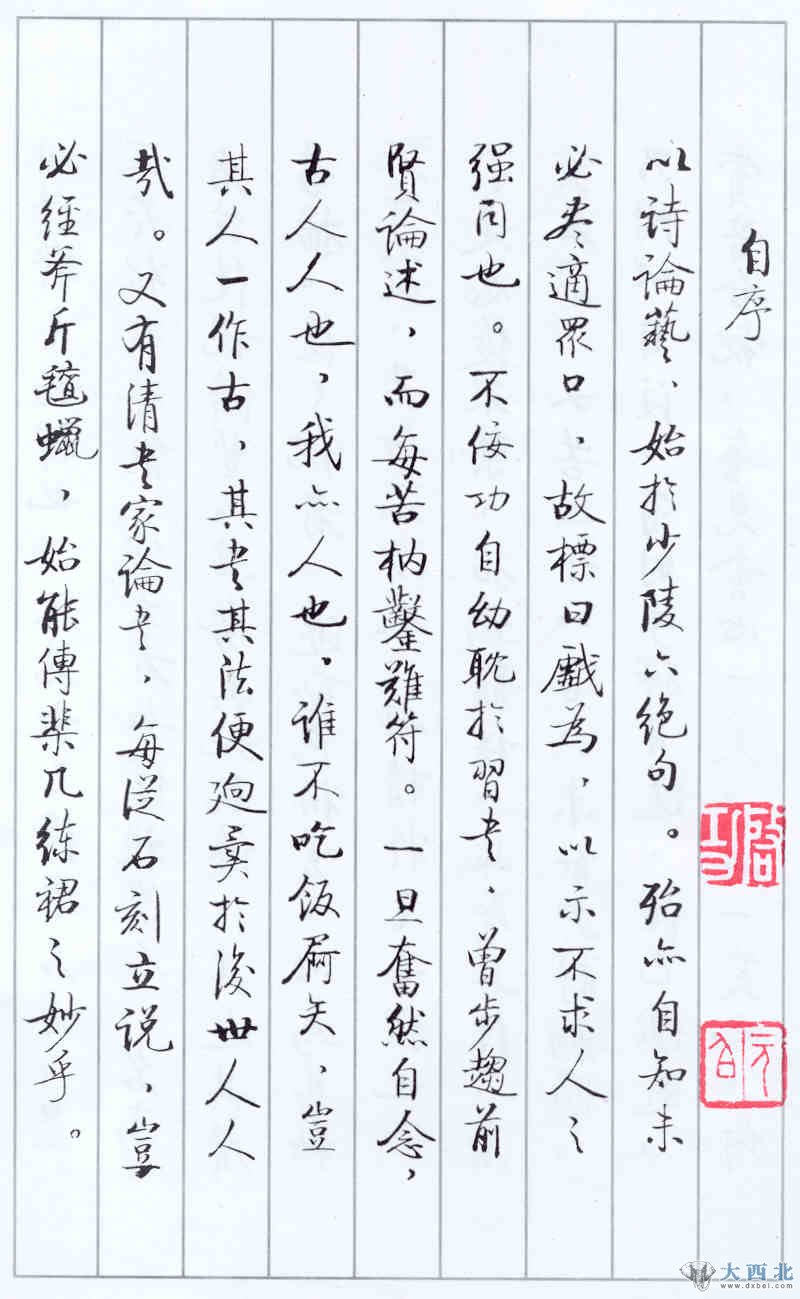 自序
以詩論藝、始於少陵六絕句。殆亦自知未
必盡適眾口、故標曰戲為、以示不求人之
强同也。不佞功自幼耽於習書、曾步趨前
賢論述，而每苦枘鑿難符。一旦奮然自念，
古人人也，我亦人也，誰不吃飯屙矢、豈
其人一作古，其書其法便迥異於後世人人
哉。又有清書家論書，每從石刻立說、豈
必經斧斤氊蠟，始能傳棐几練裙之妙乎。
啟功
元白
大西北
www.dxbei.com